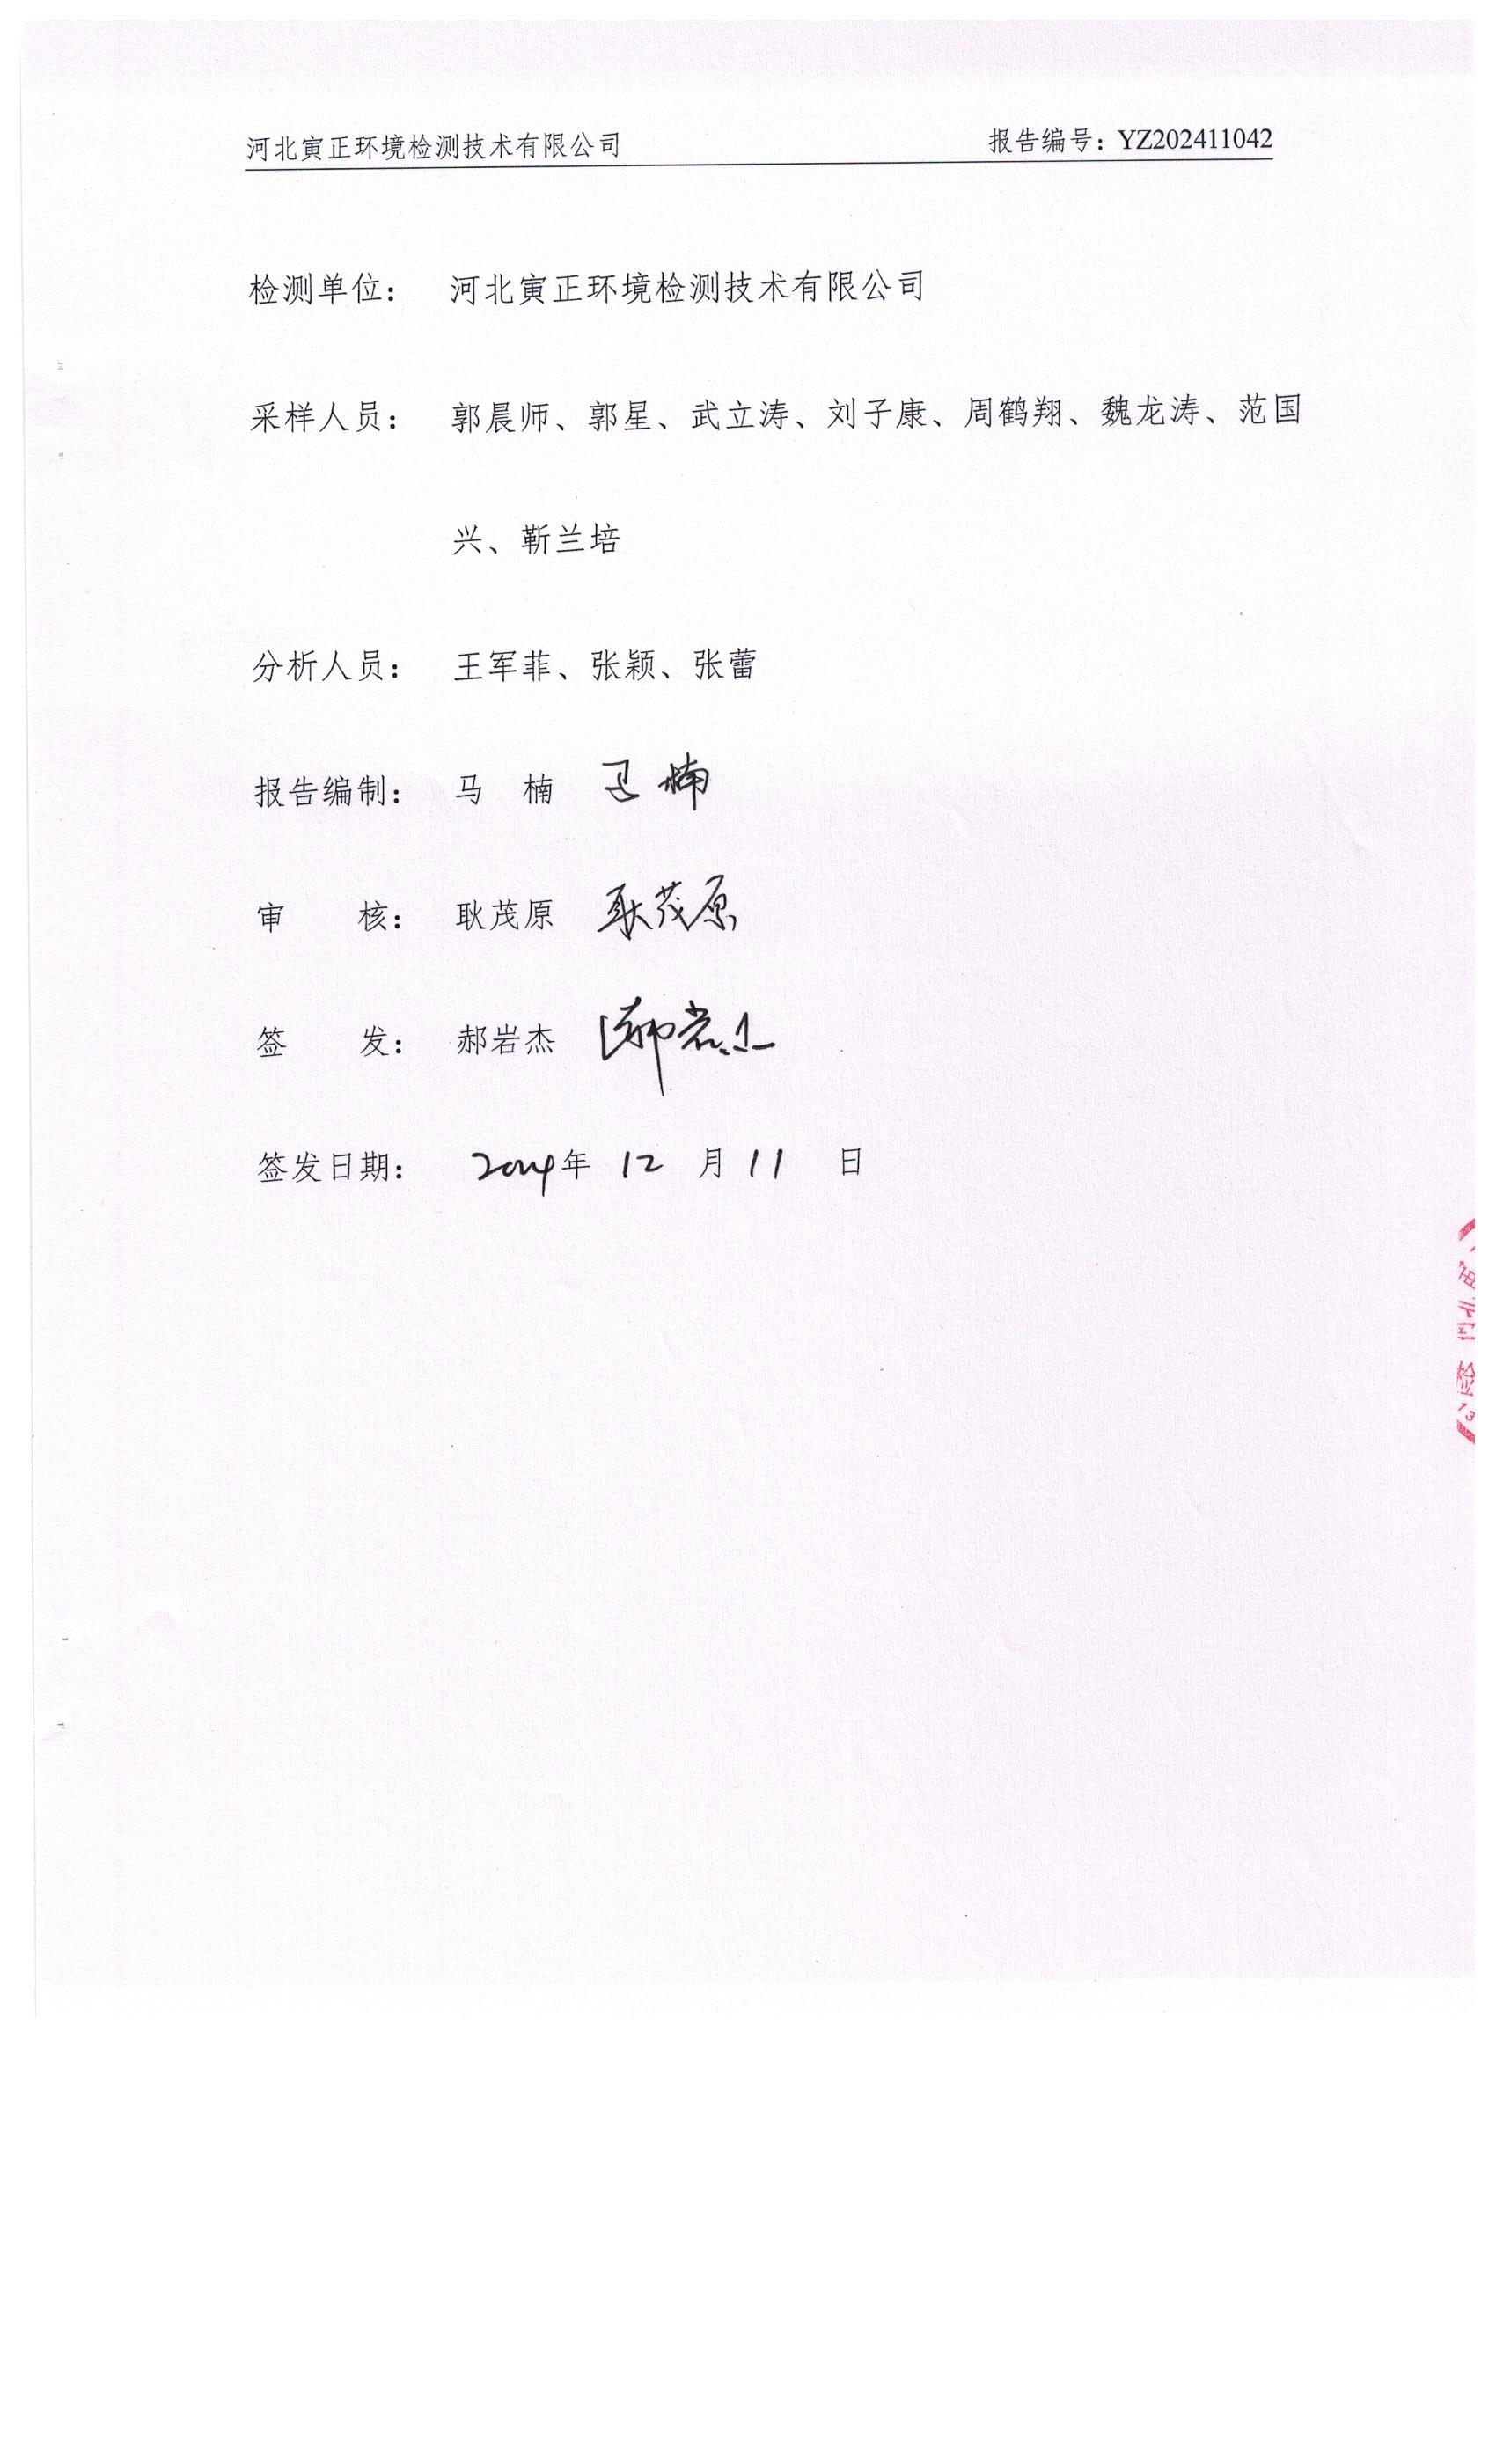 河北寅正环境检测技术有限公司 报告编号：YZ202411042
检测单位： 河北寅正环境检测技术有限公司
采样人员： 郭晨师、郭星、武立涛、刘子康、周鹤翔、魏龙涛、范国
兴、靳兰培
分析人员： 王军菲、张颖、张蕾
报告编制： 马 楠 马楠
审 核： 耿茂原 耿茂原
签 发： 郝岩杰 郝岩杰
签发日期： 2024年 12 月 11 日
检
13